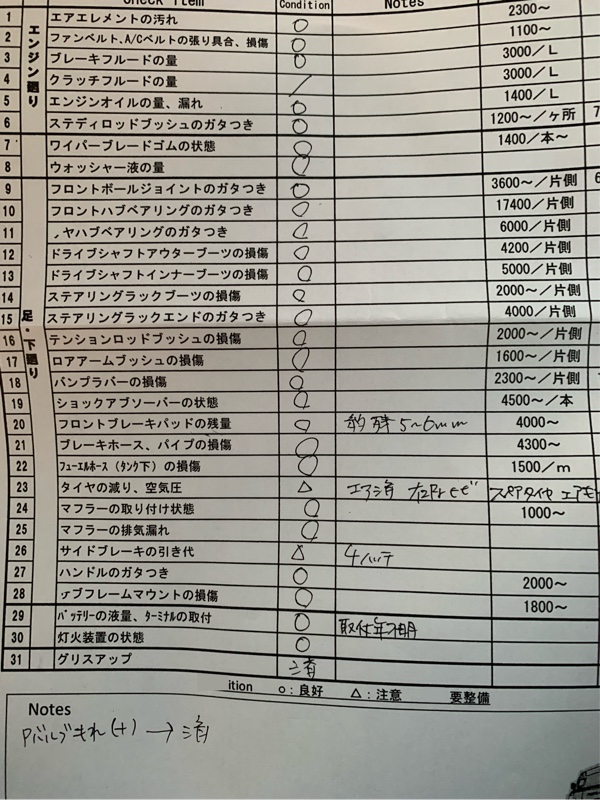 Check Item Condition Notes
エンジン廻り
1 エアエレメントの汚れ ○ 2300～
2 ファンベルト、A/Cベルトの張り具合、損傷 ○ 1100～
3 ブレーキフルードの量 ○ 3000/L
4 クラッチフルードの量 / 3000/L
5 エンジンオイルの量、漏れ ○ 1400/L
6 ステディロッドブッシュのガタつき ○ 1200～/ヶ所 7
7 ワイパーブレードゴムの状態 ○ 1400/本～
8 ウォッシャー液の量 ○
足・下廻り
9 フロントボールジョイントのガタつき ○ 3600～/片側 6
10 フロントハブベアリングのガタつき ○ 17400/片側
11 ヤハブベアリングのガタつき ○ 6000/片側
12 ドライブシャフトアウターブーツの損傷 ○ 4200/片側
13 ドライブシャフトインナーブーツの損傷 ○ 5000/片側
14 ステアリングラックブーツの損傷 ○ 2000～/片側
15 ステアリングラックエンドのガタつき ○ 4000/片側
16 テンションロッドブッシュの損傷 ○ 2000～/片側
17 ロアアームブッシュの損傷 ○ 1600～/片側
18 バンプラバーの損傷 ○ 2300～/片側
19 ショックアブソーバーの状態 ○ 4500～/本
20 フロントブレーキパッドの残量 ○ 約残5～6mm 4000～
21 ブレーキホース、パイプの損傷 ○ 4300～
22 フューエルホース(タンク下)の損傷 ○ 1500/m
23 タイヤの減り、空気圧 △ エア済 スペアタイヤ エアモ
24 マフラーの取り付け状態 ○ 1000～
25 マフラーの排気漏れ ○
26 サイドブレーキの引き代 △ 4ノッチ
27 ハンドルのガタつき ○ 2000～
28 ブフレームマウントの損傷 ○ 1800～
29 バッテリーの液量、ターミナルの取付 ○
30 灯火装置の状態 ○
31 グリスアップ 済
ition ○:良好 △:注意 要整備
Notes
Pバルブきれ(+) → 済